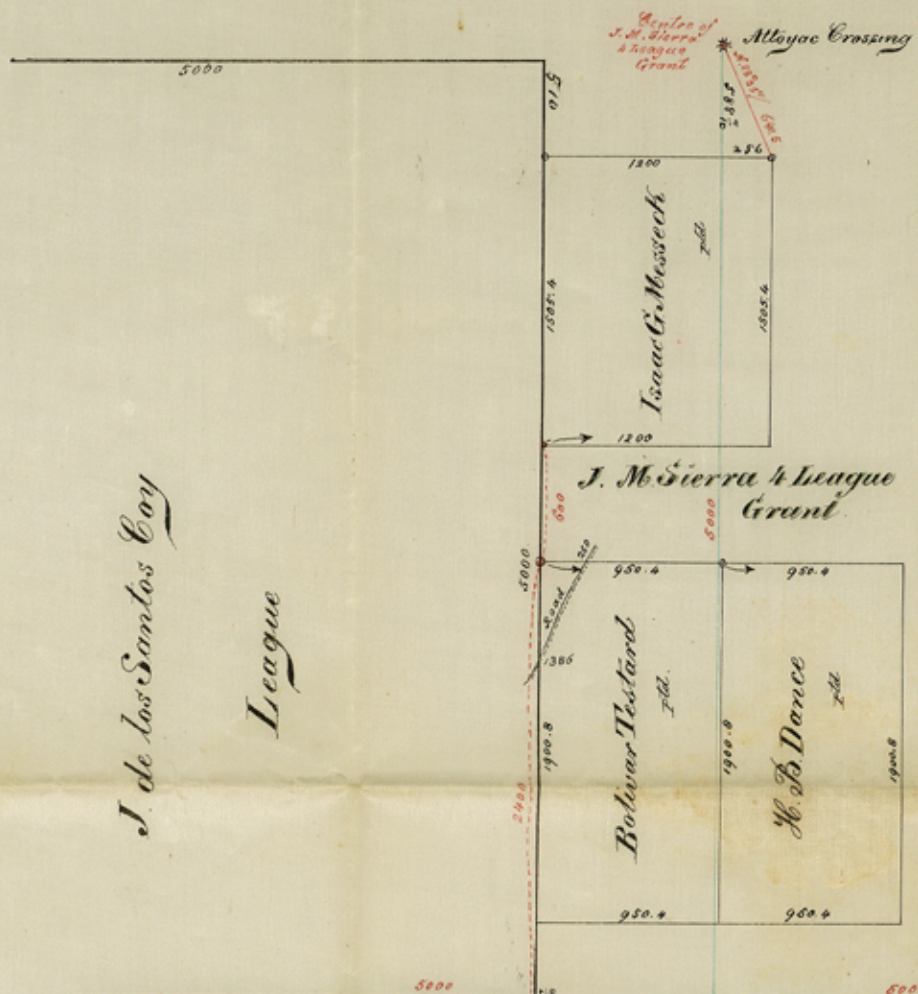 Centre of
J. M. Sierra
4 League
Grant
Attoyac Crossing
5000
510
585
640.5
256
1200
Isaac G. Messeck
ptd.
1505.4
1505.4
1200
J. M. Sierra 4 League
Grant
600
5000
5000
950.4
950.4
Road
250
1386
J. de los Santos Coy
League
Bolivar Testard
ptd.
H. B. Dance
ptd
1900.8
1900.8
1900.8
2400
950.4
950.4
5000